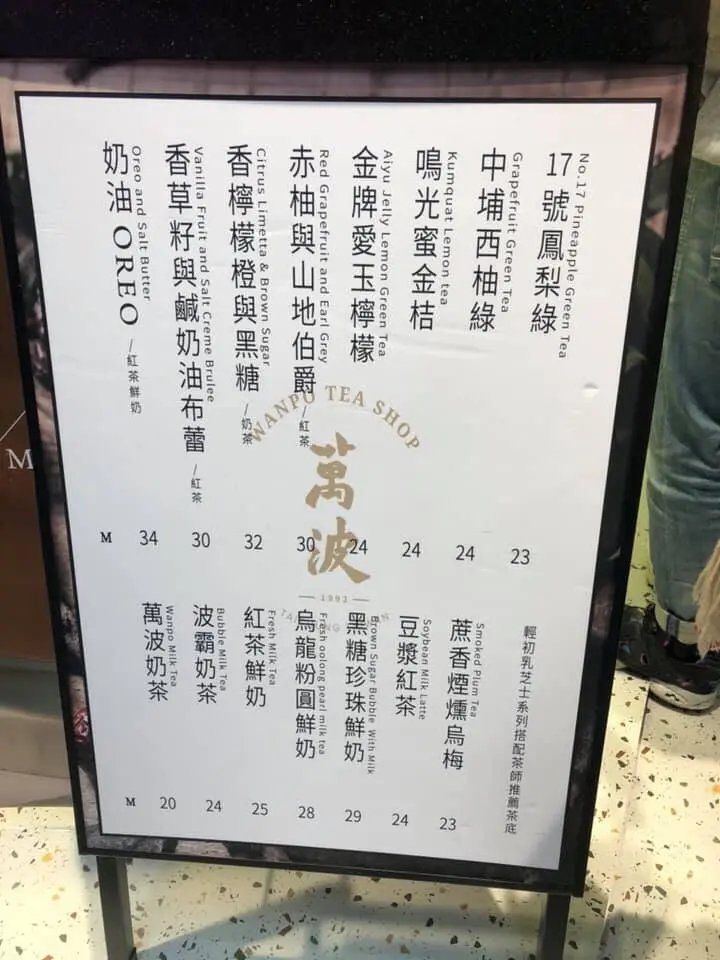 No.17 Pineapple Green Tea
17號鳳梨綠
Grapefruit Green Tea
中埔西柚綠
Kumquat Lemon tea
鳴光蜜金桔
Aiyu Jelly Lemon Green Tea
金牌愛玉檸檬
Red Grapefruit and Earl Grey
赤柚與山地伯爵 /紅茶
Citrus Limetta & Brown Sugar
香檸檬橙與黑糖 /奶茶
Vanilla Fruit and Salt Creme Brulee
香草籽與鹹奶油布蕾 /紅茶
Oreo and Salt Butter
奶油 OREO /紅茶鮮奶
M 34 30 32 30 24 24 24 23
WANPO TEA SHOP
萬波
輕初乳芝士系列搭配茶師推薦茶底
Smoked Plum Tea
蔗香煙燻烏梅
Soybean Milk Latte
豆漿紅茶
Brown Sugar Bubble With Milk
黑糖珍珠鮮奶
Fresh oolong pearl milk tea
烏龍粉圓鮮奶
Fresh Milk Tea
紅茶鮮奶
Bubble Milk Tea
波霸奶茶
Wanpo Milk Tea
萬波奶茶
M 20 24 25 28 29 24 23
M